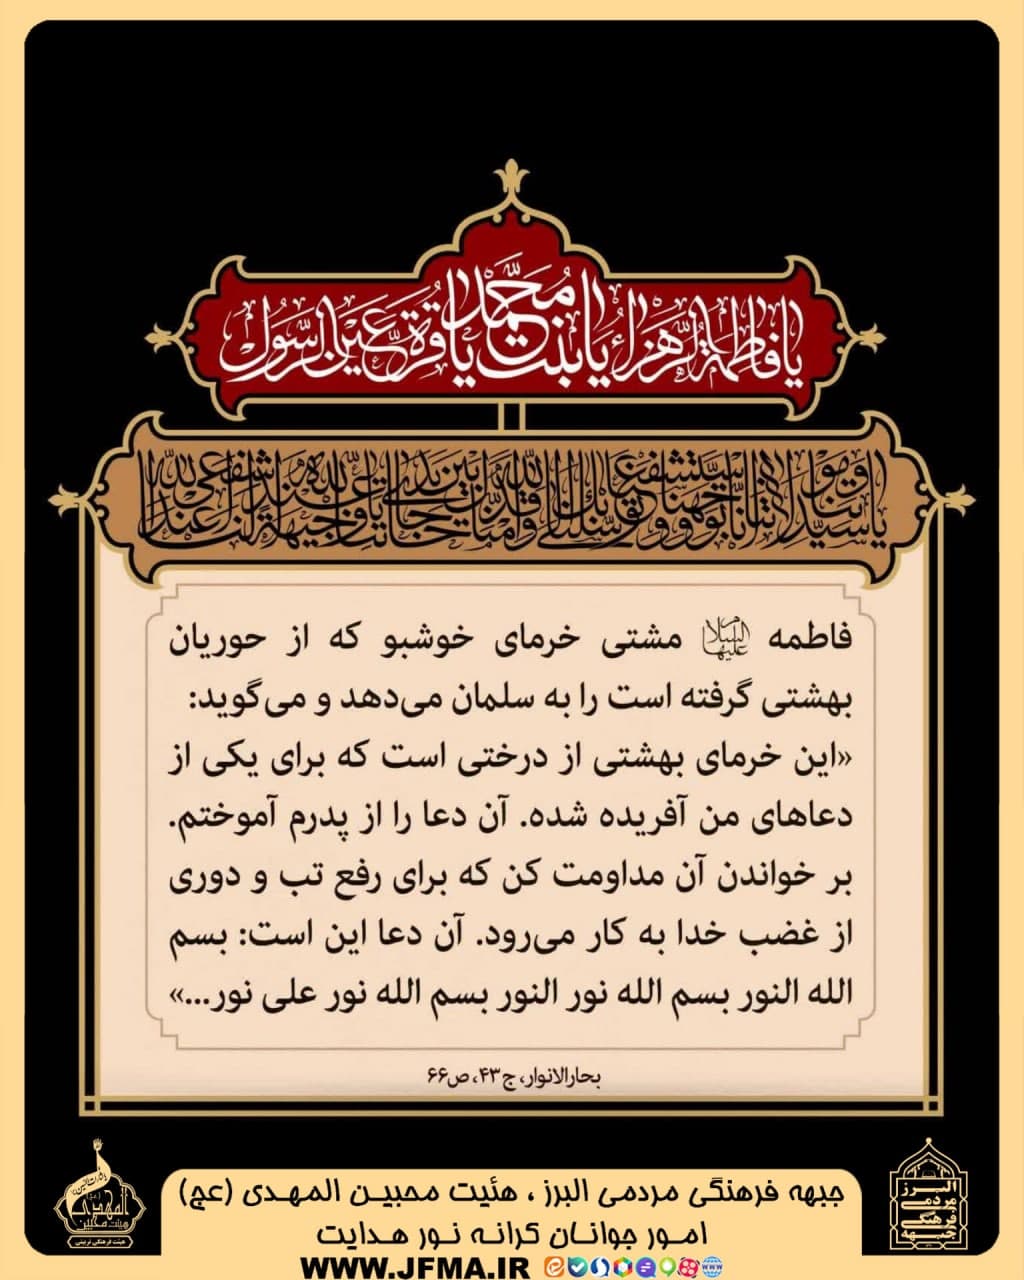 يا فاطمة الزهراء يا بنت محمد يا قرة عين الرسول
يا سيدتنا ومولاتنا إنا توجهنا واستشفعنا وتوسلنا بك إلى الله وقدمناك بين يدي حاجاتنا يا وجيهة عند الله اشفعي لنا عند الله
فاطمه علیها السلام مشتی خرمای خوشبو که از حوریان
بهشتی گرفته است را به سلمان می‌دهد و می‌گوید:
«این خرمای بهشتی از درختی است که برای یکی از
دعاهای من آفریده شده. آن دعا را از پدرم آموختم.
بر خواندن آن مداومت کن که برای رفع تب و دوری
از غضب خدا به کار می‌رود. آن دعا این است: بسم
الله النور بسم الله نور النور بسم الله نور علی نور...»
بحارالانوار، ج۴۳، ص۶۶
البرز
مردمی
فرهنگی
جبهه
المهدی
هیئت محبین
هیئت فرهنگی تربیتی
جبهه فرهنگی مردمی البرز ، هئیت محبین المهدی (عج)
امور جوانان کرانه نور هدایت
WWW.JFMA.IR